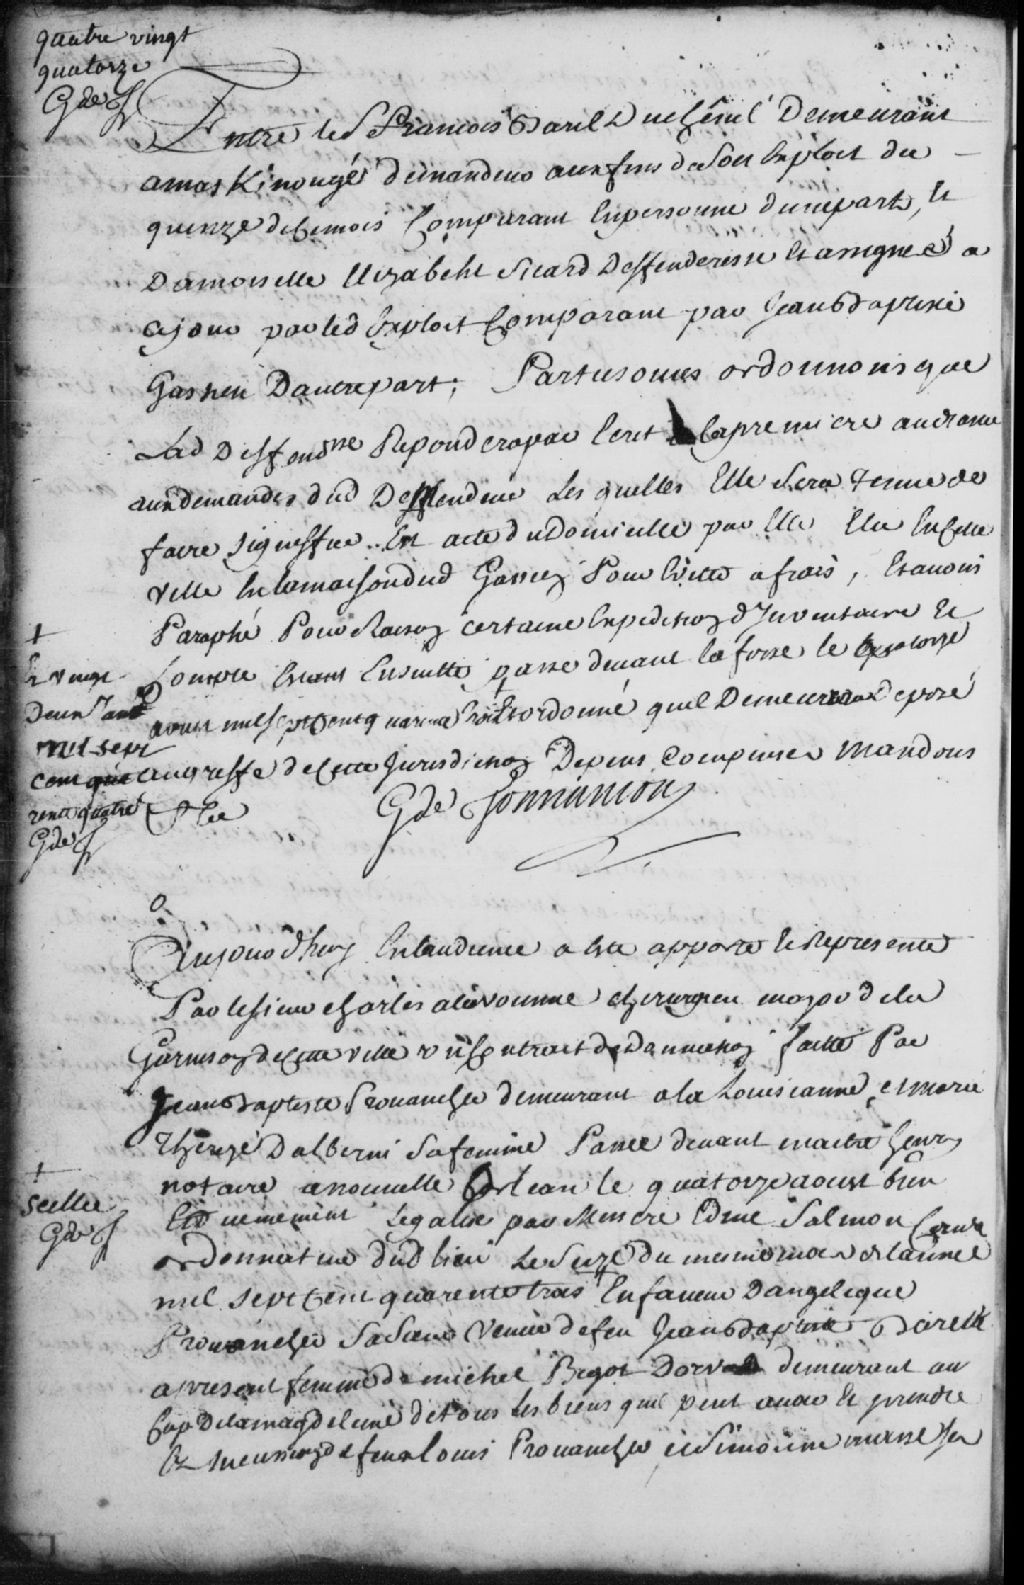 quatre vingt
quatorze
Gde
Entre le S françois Baril Duchenil Demeurant
a maskinongé demandeur aux fins de son Exploit du
quinze de ce mois Comparant En personne dune part, Et
Damoiselle Elizabeht Sicard Deffenderesse Et assignéé a
ce jour par led Exploit Comparant par Jean baptiste
Gastien Dautre part; Parties ouies ordonnons que
Lad Deffendresse Repondera par Ecrit a la premiere audiance
aux demandes dud Deffendeur Les quelles Elle Sera tenue de
faire signiffier Et acte du domicille par Elle Elu En Cette
ville En la maison dud Gastien Pour Evitter a frais, Et avons
Paraphé Pour Raison certaine Expedition d'Inventaire Et
Compte Etant Ensuitte passé devant la fosse le quatorze
aoust mil sept Cent quarante trois Et ordonné quil Demeurera deposé
au greffe de Cette Jurisdiction Depens Compensez Mandons
Et vingt
deux
mil sept
cent qua
rente quatre
Gde
Gde Tonnancour
Aujourdhuy En laudience a Eté apporté Et Representé
Par le sieur charles alavoinne chirurgien major de la
Garnison de Cette ville un Contract de Donnation faitte Par
Jean Baptiste Provancher demeurant a la Louisianne, Et marie
Thereze Dalberni sa femme Passé devant maitre henry
notaire a nouvelle Orlean le quatorze aoust bien
Et duement Legalisé par Messire Edme Salmon
ordonnateur dud lieu Le Seize du mesme mois de lannée
mil sept Cent quarente trois En faveur dangelique
Provancher Sa Sœur Veuve de feu Jean Baptiste
a present femme de michel Bigot Dorval demeurant au
Cap Delamagdelaine de tous Les biens quil peut avoir Et prendre
Es successions de feux Louis Provancher
scellé
Gde